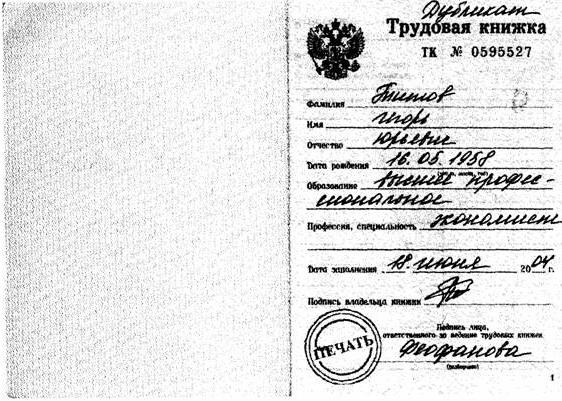 Дубликат
Трудовая книжка
ТК № 0595527
Фамилия Титов
Имя Игорь
Отчество Юрьевич
Дата рождения 16.05.1958
Образование высшее профес-
сиональное
Профессия, специальность экономист
Дата заполнения 18 июня 2004 г.
Подпись владельца книжки
Подпись лица,
ответственного за ведение трудовых книжек
ПЕЧАТЬ
Феофанова
(разборчиво)
1